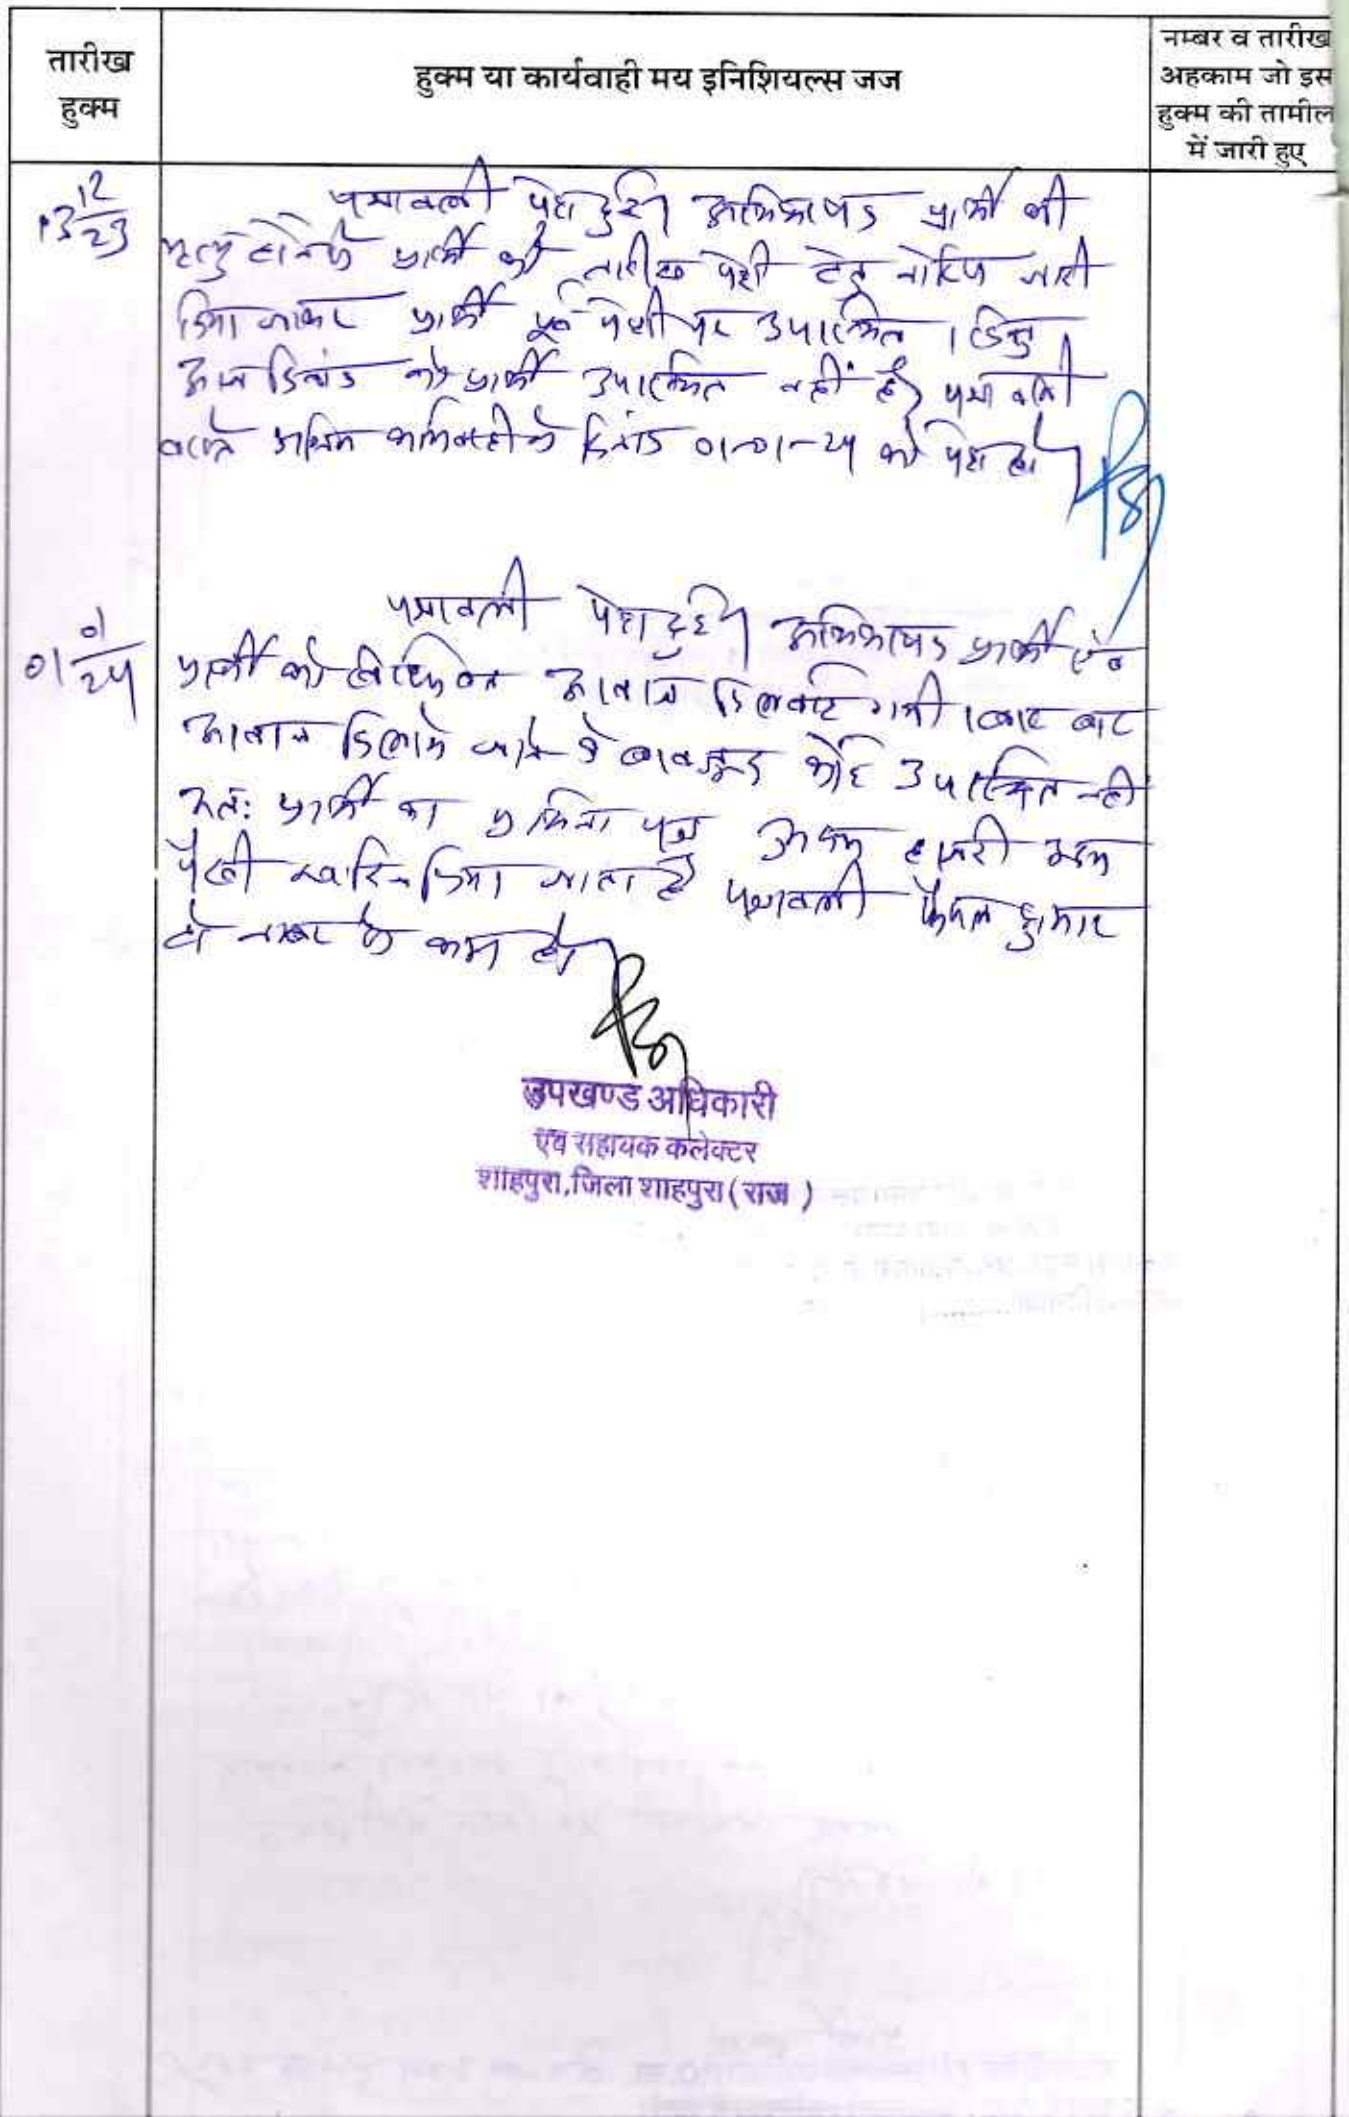 तारीख
हुक्म
हुक्म या कार्यवाही मय इनिशियल्स जज
नम्बर व तारीख
अहकाम जो इस
हुक्म की तामील
में जारी हुए
13 12/23
पत्रावली पेश हुई। अभिभाषक प्रार्थी की
मृत्यु होने से प्रार्थी को तारीख पेशी हेतु नोटिस जारी
किया जाकर प्रार्थी पूर्व पेशी पर उपस्थित। किन्तु
आज दिनांक को प्रार्थी उपस्थित नहीं है। पत्रावली
वास्ते अग्रिम कार्यवाही के दिनांक 01-01-24 को पेश हो
01 01/24
पत्रावली पेश हुई। अभिभाषक प्रार्थी एवं
प्रार्थी को आवाज दिलवाई गयी। बार बार
आवाज दिलाये जाने के बावजूद कोई उपस्थित नहीं
अतः प्रार्थी का प्रार्थना पत्र अदम हाजरी अदम
पैरवी खारिज किया जाता है पत्रावली फैसल शुमार
हो नम्बर से कम हो।
उपखण्ड अधिकारी
एवं सहायक कलेक्टर
शाहपुरा, जिला शाहपुरा (राज )